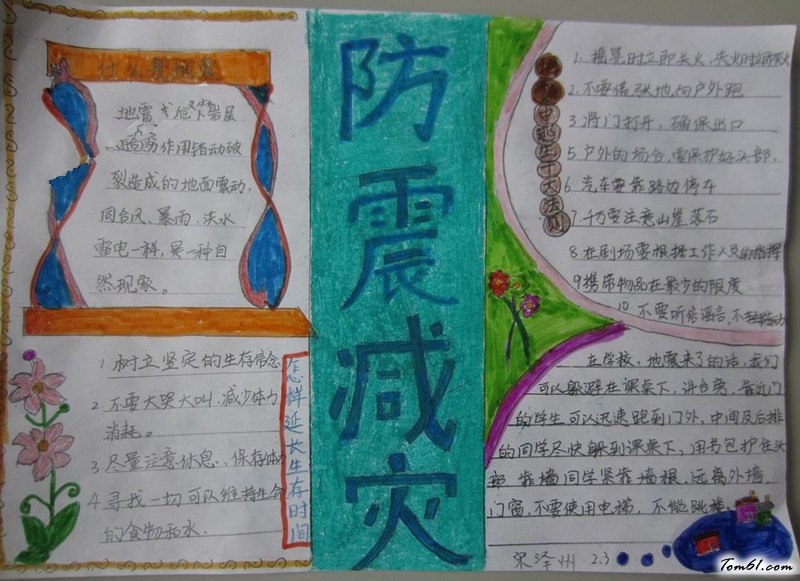 什么是地震
地震是地下岩层
受应力作用错动破
裂造成的地面震动,
同台风、暴雨、洪水
雷电一样,是一种自
然现象。
1 树立坚定的生存信念
2 不要大哭大叫,减少体力
消耗。
3 尽量注意休息、保存体力
4 寻找一切可以维持生命
的食物和水.
怎样延长生存时间
防震减灾
中逃生十大法则
1. 摇晃时立即关火,失火时立即灭火
2. 不要慌张地向户外跑
3 将门打开,确保出口
5 户外的场合,要保护好头部.
6 汽车要靠路边停车
7 千万要注意山崖落石
8 在剧场要根据工作人员的指挥
9 携带物品在最少的限度
10 不要听信谣言,不轻举妄动
在学校,地震来了的话,我们
可以躲避在课桌下,讲台旁,靠近门
的学生可以迅速跑到门外,中间及后排
的同学尽快躲到课桌下,用书包护住头
部,靠墙同学紧靠墙根,远离外墙,
门窗,不要使用电梯,不能跳楼
梁泽州 2.3
Tom61.com